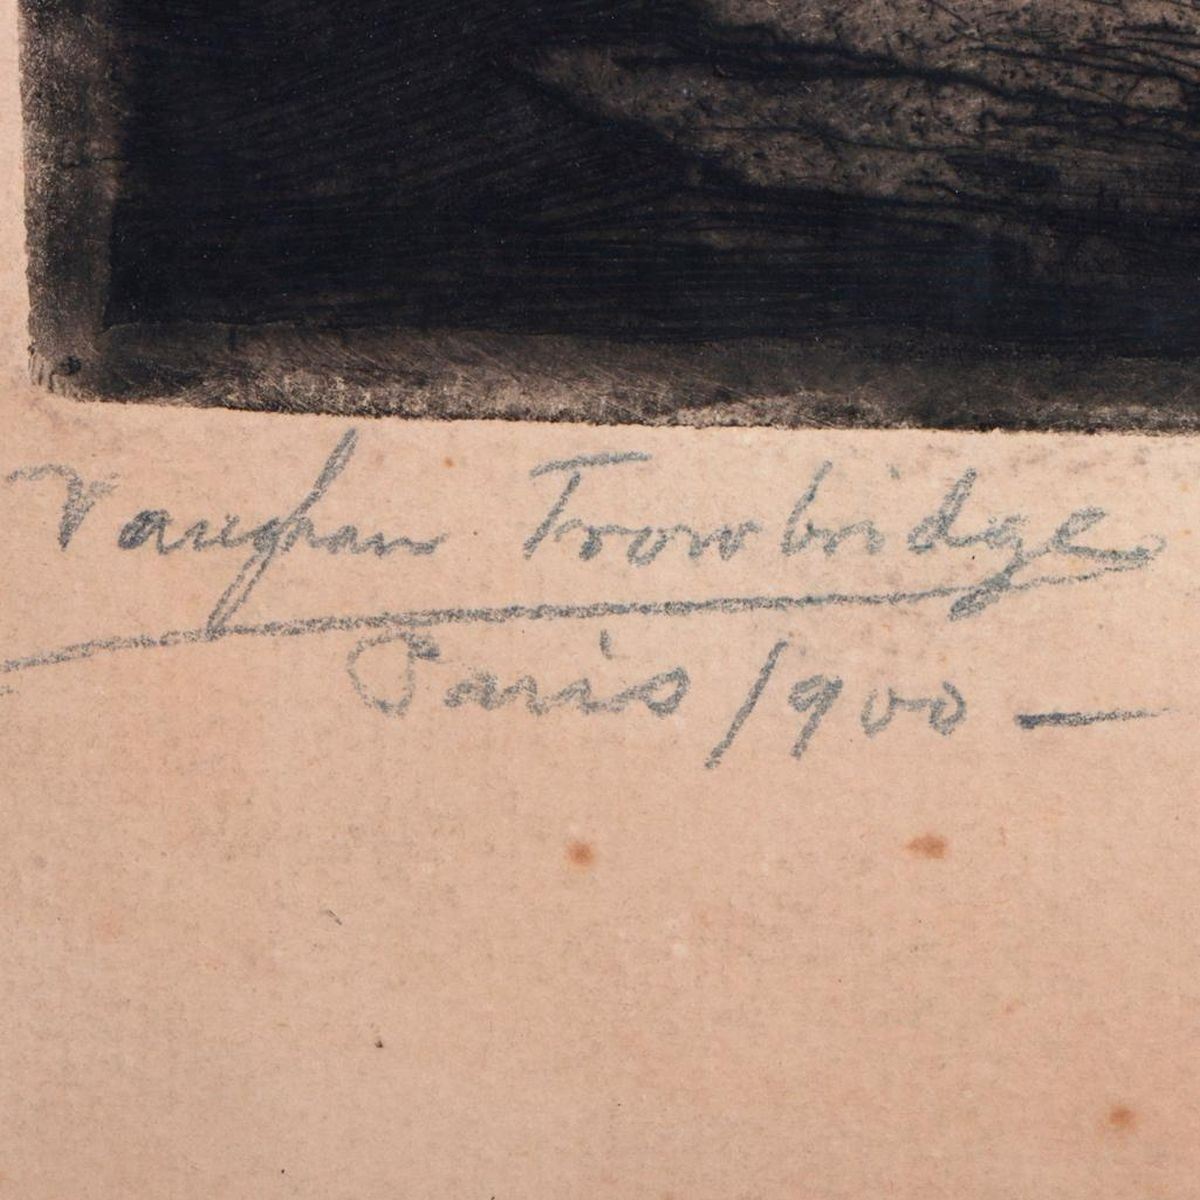 Vaughan Trowbridge
Paris 1900 —